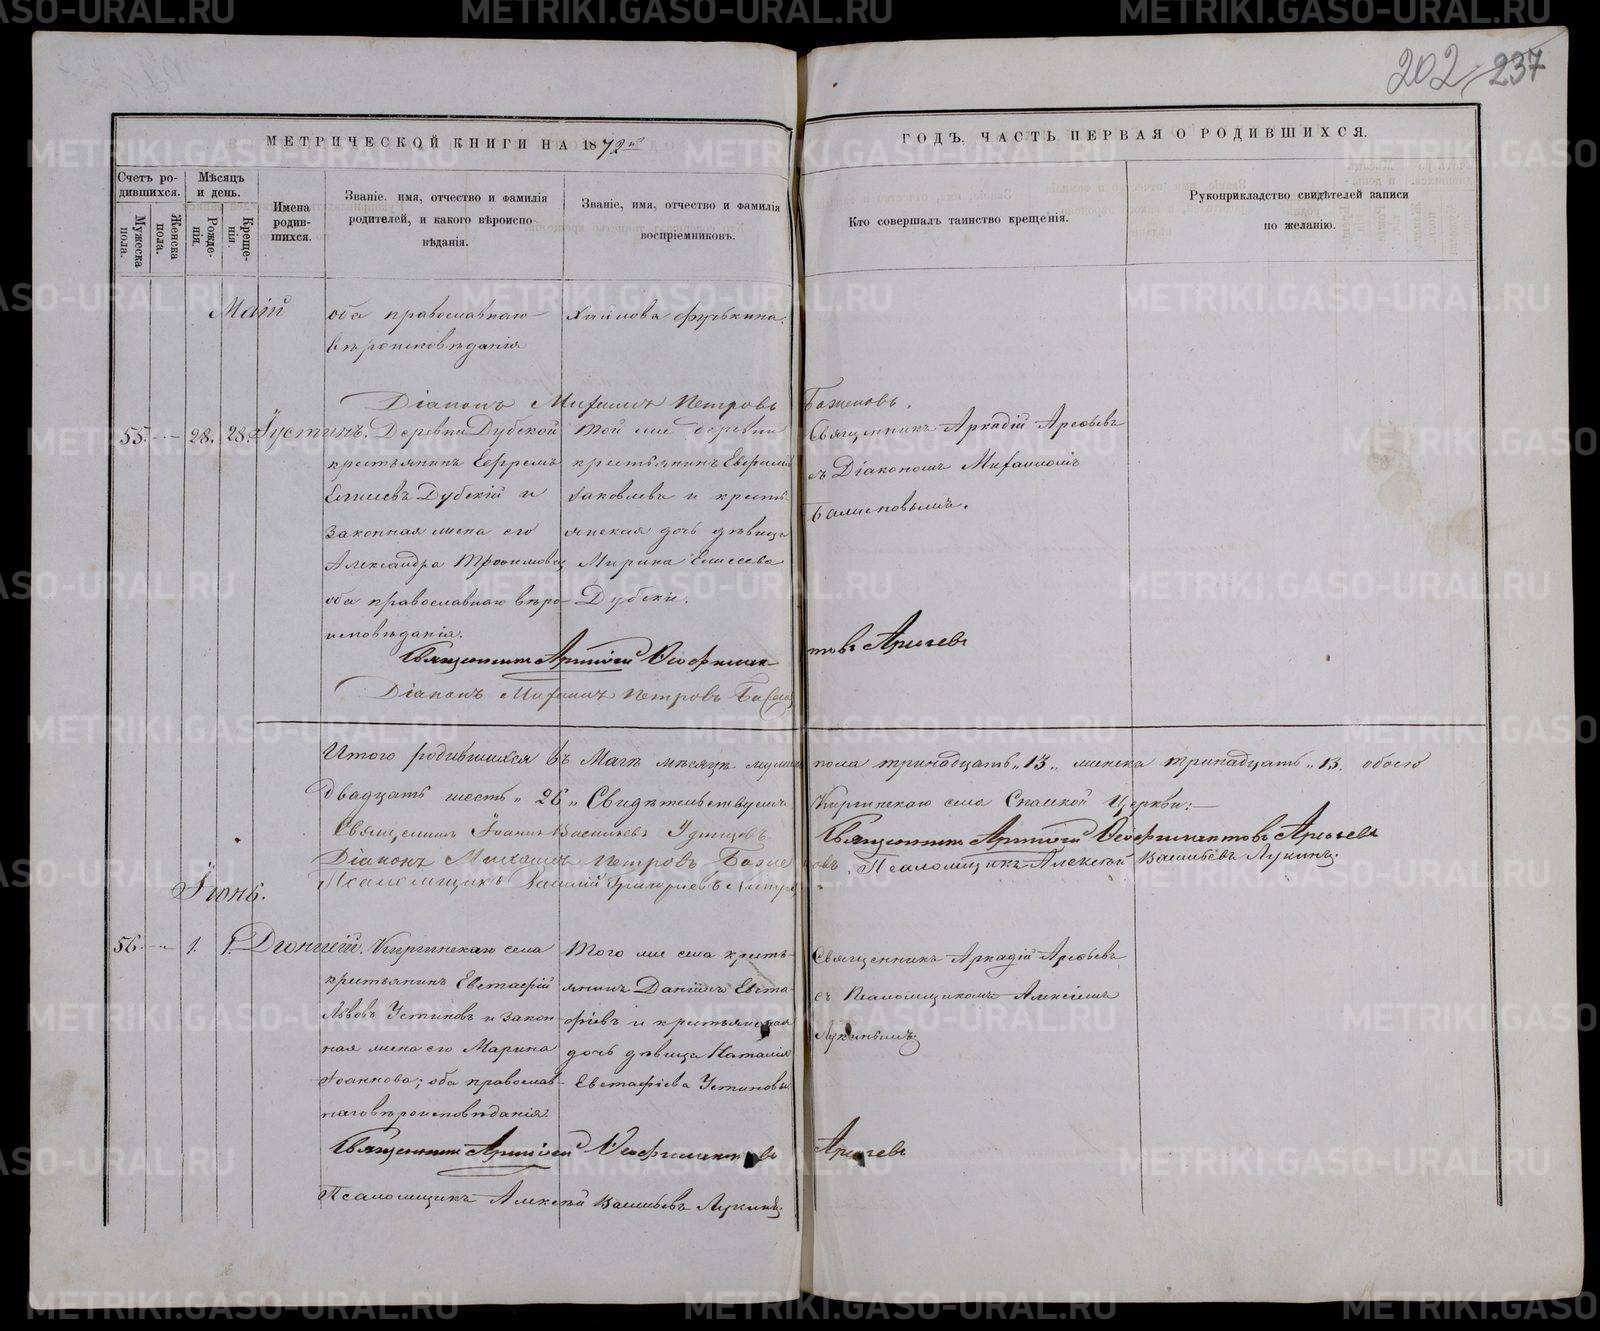 METRIKI.GASO-URAL.RU
202 237
МЕТРИЧЕСКОЙ КНИГИ НА 1872й
ГОДЪ, ЧАСТЬ ПЕРВАЯ О РОДИВШИХСЯ.
Счетъ родившихся.
Мужеска пола.
Женска пола.
Мѣсяцъ и день.
Рожденія.
Крещенія.
Имена родившихся.
Званіе, имя, отчество и фамилія родителей, и какого вѣроисповѣданія.
Званіе, имя, отчество и фамилія воспріемниковъ.
Кто совершалъ таинство крещенія.
Рукоприкладство свидѣтелей записи по желанію.
Маій
оба православнаго
вѣроисповѣданія
Діаконъ Михаилъ Петровъ Баженовъ.
55. 28. 28. Іустинъ.
Деревни Дубской
крестьянинъ Ефремъ
Елисѣевъ Дубскій и
законная жена его
Александра Трофимова
оба православнаго вѣро-
исповѣданія.
Той же деревни
крестьянинъ Евфимій
Іаковлевъ и кресть-
янская дочь дѣвица
Марина Елисеева
Дубскіе.
Священникъ Аркадій Арефьевъ
съ Діакономъ Михаиломъ
Баженовымъ.
Священникъ Аркадій Феофилактовъ Арефьевъ
Діаконъ Михаилъ Петровъ Баженовъ
Итого родившихся въ Маѣ мѣсяцѣ мужеска пола тринадцать „13„ женска тринадцать „13. обоего
двадцать шесть „26„ Свидѣтельствуемъ Киргинскаго села Спаской Церкви:
Священникъ Іоаннъ Васильевъ Удинцовъ.
Священникъ Аркадій Феофилактовъ Арефьевъ
Діаконъ Михаилъ Петровъ Баженовъ. Псаломщикъ Алексѣй Васильевъ Лукинъ.
Псаломщикъ Василій Григорьевъ
Іюнь.
56. 1. 1. Діонисій.
Киргинскаго села
крестьянинъ Евстафій
Львовъ Устиновъ и закон-
ная жена его Марина
Іоаннова; оба православ-
наго вѣроисповѣданія.
Того же села кресть-
янинъ Даніилъ Евста-
фіевъ и крестьянская
дочь дѣвица Наталія
Евстафіева Устиновы
Священникъ Аркадій Арефьевъ
съ Псаломщикомъ Алексѣемъ
Лукинымъ
Священникъ Аркадій Феофилактовъ Арефьевъ
Псаломщикъ Алексѣй Васильевъ Лукинъ.